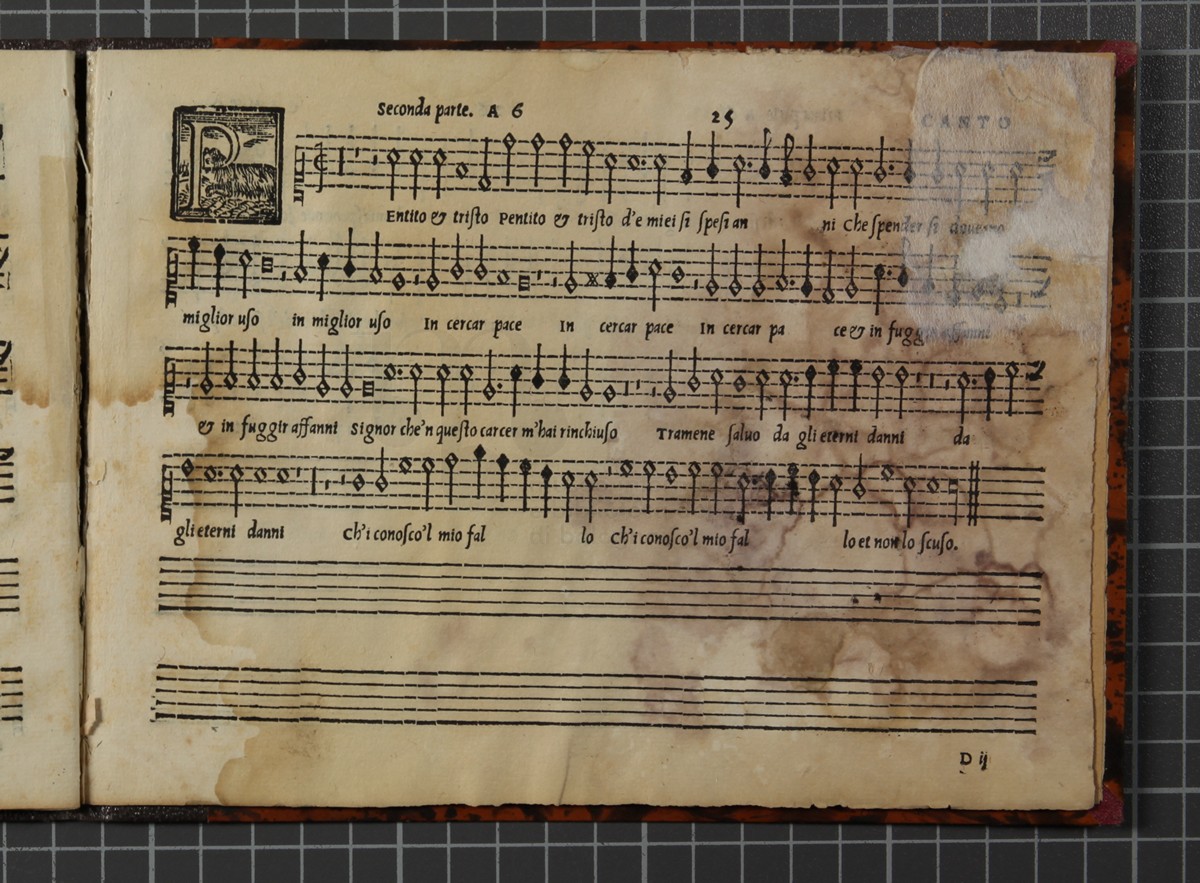 Seconda parte. A 6 25 CANTO
P Entito & tristo Pentito & tristo d'e miei si spesi an ni Che spender si
miglior uso in miglior uso In cercar pace In cercar pace In cercar pa ce & in fuggir affanni
& in fuggir affanni Signor che'n questo carcer m'hai rinchiuso Tramene saluo da gli eterni danni da
gli eterni danni Ch'i conosco'l mio fal lo Ch'i conosco'l mio fal lo et non lo scuso.
D ij